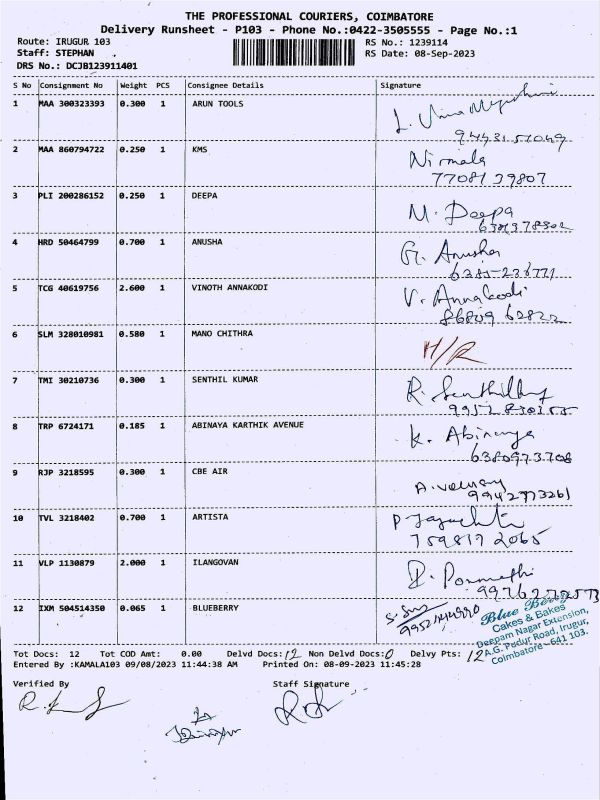 THE PROFESSIONAL COURIERS, COIMBATORE
Delivery Runsheet - P103 - Phone No.:0422-3505555 - Page No.:1
Route: IRUGUR 103 RS No.: 1239114
Staff: STEPHAN RS Date: 08-Sep-2023
DRS No.: DCJB123911401
S No Consignment No Weight PCS Consignee Details Signature
1 MAA 300323393 0.300 1 ARUN TOOLS
2 MAA 860794722 0.250 1 KMS Nirmala
77081 39807
3 PLI 200286152 0.250 1 DEEPA M. Deepa
4 HRD 50464799 0.700 1 ANUSHA G. Anusha
5 TCG 40619756 2.600 1 VINOTH ANNAKODI V. Annakodi
86809 62822
6 SLM 328010981 0.580 1 MANO CHITHRA H/R
7 TMI 30210736 0.300 1 SENTHIL KUMAR
8 TRP 6724171 0.185 1 ABINAYA KARTHIK AVENUE K. Abinaya
6380973708
9 RJP 3218595 0.300 1 CBE AIR
9942773261
10 TVL 3218402 0.700 1 ARTISTA
759817 2065
11 VLP 1130879 2.000 1 ILANGOVAN
12 IXM 504514350 0.065 1 BLUEBERRY
Blue Berry
Cakes & Bakes
Deepam Nagar Extension,
A.G. Pudur Road, Irugur,
Coimbatore - 641 103.
Tot Docs: 12 Tot COD Amt: 0.00 Delvd Docs: 12 Non Delvd Docs: 0 Delvy Pts: 12
Entered By :KAMALA103 09/08/2023 11:44:38 AM Printed On: 08-09-2023 11:45:28
Verified By Staff Signature